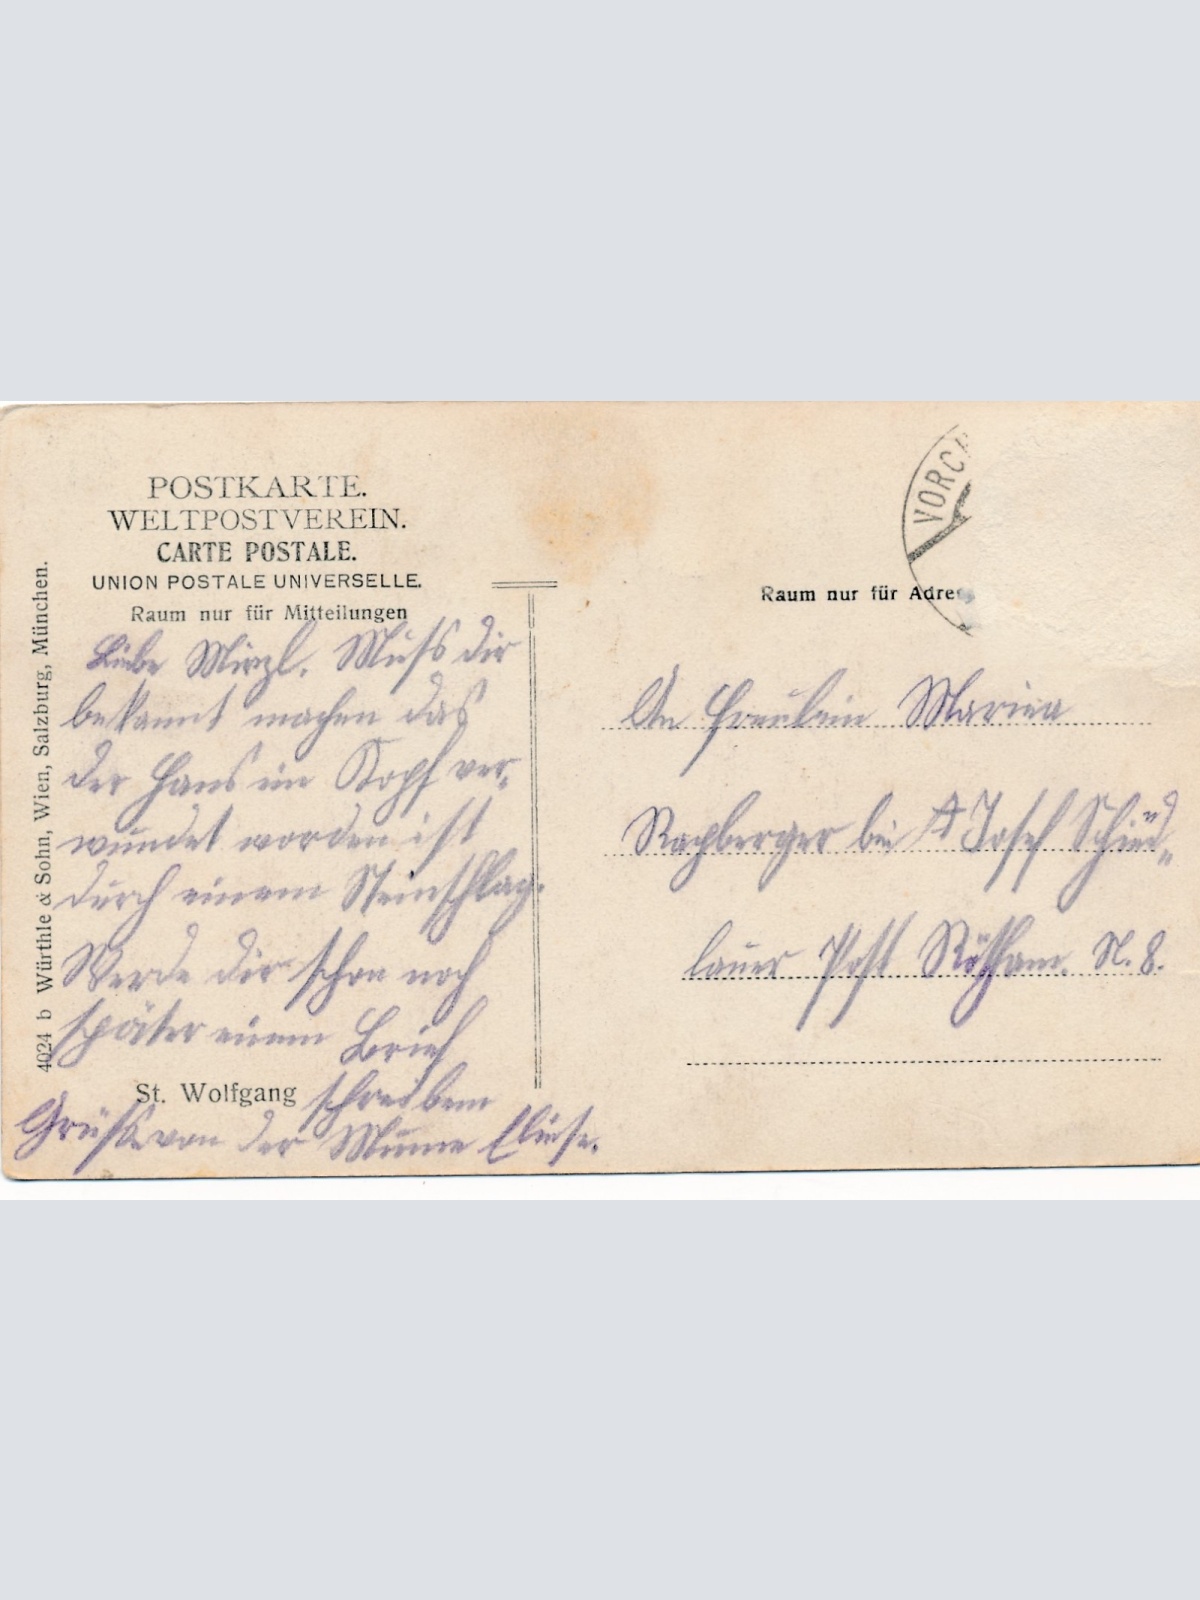 POSTKARTE.
WELTPOSTVEREIN.
CARTE POSTALE.
UNION POSTALE UNIVERSELLE.
Raum nur für Mitteilungen
Liebe Mirzl. Muß dir
bekannt machen das
der Hans im Kopf ver-
wundet worden ist
durch einem Steinschlag.
Werde dir schon noch
später einem Brief
schreiben
Grüße von der Mume Eliese.
St. Wolfgang
4024 b Würthle & Sohn, Wien, Salzburg, München.
VORC
Raum nur für Adres
An Fräulein Maria
bei Josef
lauer Post N. 8.